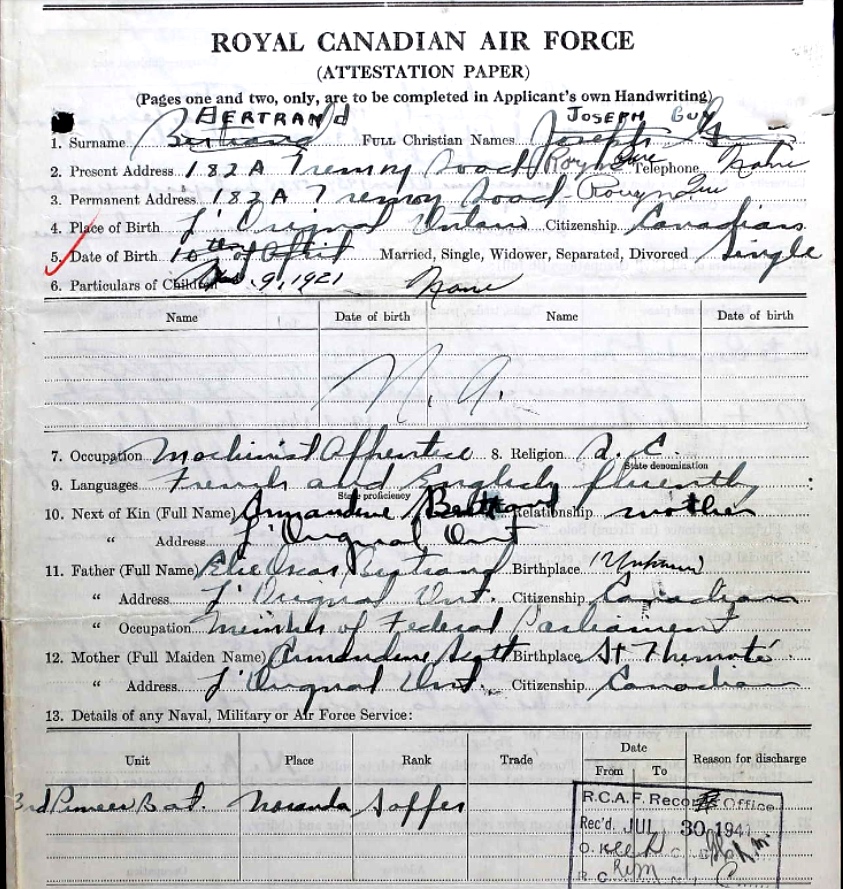 ROYAL CANADIAN AIR FORCE
(ATTESTATION PAPER)
(Pages one and two, only, are to be completed in Applicant's own Handwriting)
BERTRAND JOSEPH GUY
1. Surname Bertrand FULL Christian Names Joseph
2. Present Address 182 A Tremoy Road Rouyn Que Telephone None
3. Permanent Address 182 A Tremoy Road Rouyn Que
4. Place of Birth L'Orignal Ontario Citizenship Canadian
5. Date of Birth 10 of April Married, Single, Widower, Separated, Divorced Single
6. Particulars of Children 9, 1921 None
Name Date of birth Name Date of birth
N. A.
7. Occupation Machinist Apprentice 8. Religion R. C.
State denomination
9. Languages French and English fluently
State proficiency
10. Next of Kin (Full Name) Armandine Bertrand Relationship mother
" Address L'Orignal Ont
11. Father (Full Name) Elie Oscar Bertrand Birthplace Unknown
" Address L'Orignal Ont. Citizenship Canadian
" Occupation Member of Federal Parliament
12. Mother (Full Maiden Name) Armandine Birthplace St
" Address L'Orignal Ont. Citizenship Canadian
13. Details of any Naval, Military or Air Force Service:
Unit Place Rank Trade Date Reason for discharge
From To
3rd Pioneer Bat. Noranda Sapper
R.C.A.F. Records Office
Rec'd. JUL 30 1941